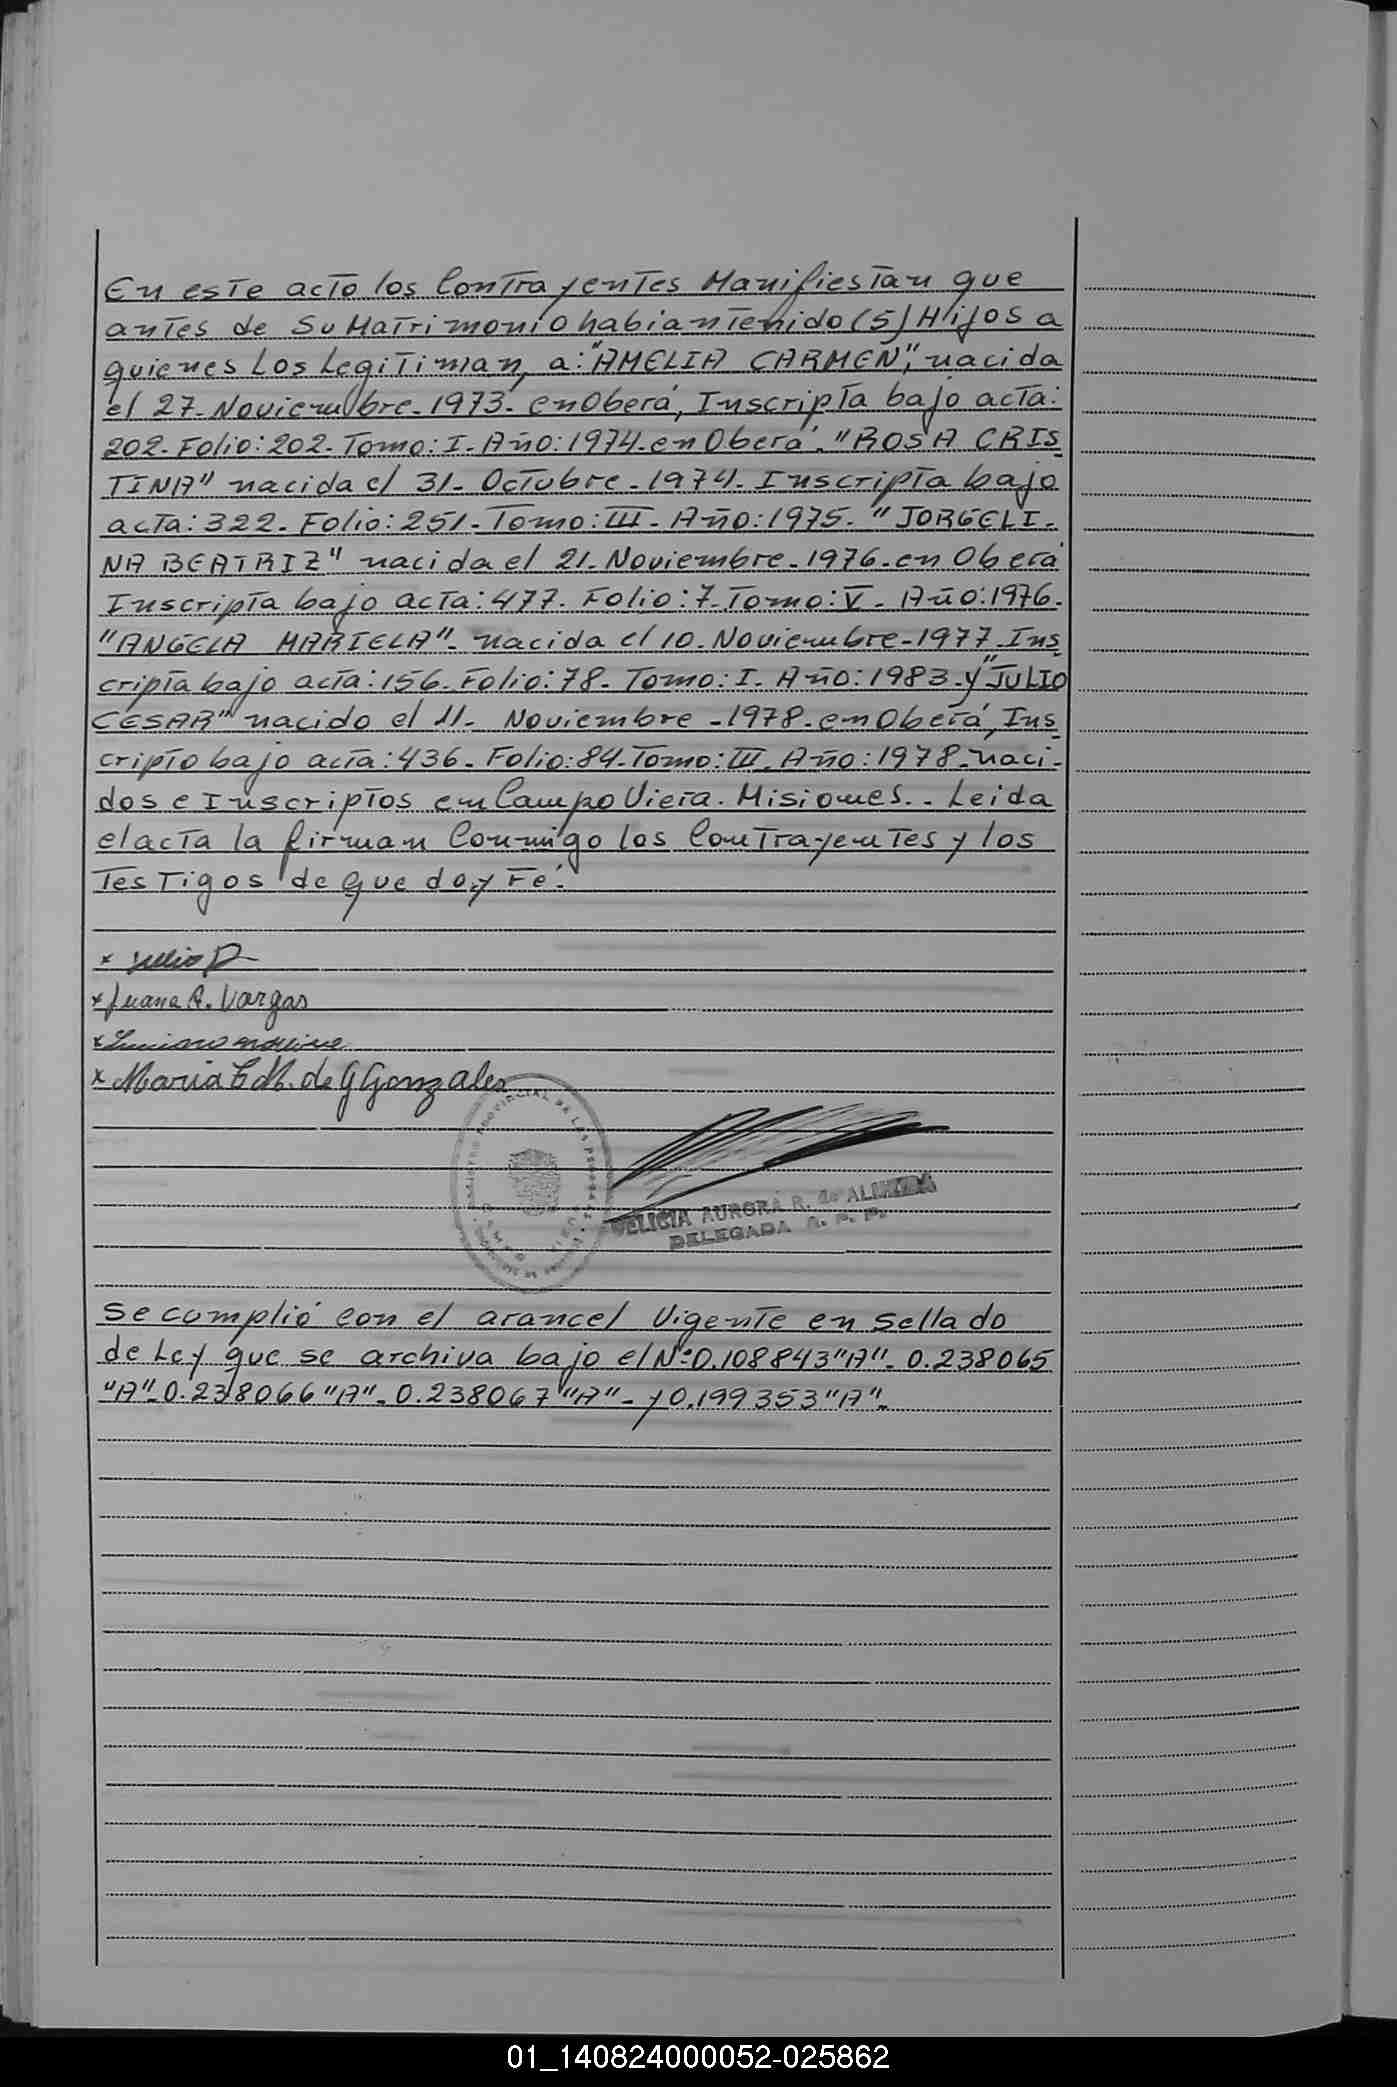 En este acto los Contrayentes Manifiestan que
antes de Su Matrimonio habian tenido (5) Hijos a
quienes Los Legitiman, a: "AMELIA CARMEN", nacida
el 27- Noviembre - 1973 - en Oberá, Inscripta bajo acta:
202 - Folio: 202 - Tomo: I - Año: 1974 - en Oberá. "ROSA CRIS
TINA" nacida el 31 - Octubre - 1974 - Inscripta bajo
acta: 322 - Folio: 251 - Tomo: III - Año: 1975 - "JORGELI-
NA BEATRIZ" nacida el 21 - Noviembre - 1976 - en Oberá
Inscripta bajo acta: 477 - Folio: 7 - Tomo: V - Año: 1976 -
"ANGELA MARIELA" - nacida el 10 - Noviembre - 1977 Ins
cripta bajo acta: 156 - Folio: 78 - Tomo: I - Año: 1983 - y "JULIO
CESAR" nacido el 11 - Noviembre - 1978 - en Oberá, Ins
cripto bajo acta: 436 - Folio: 84 - Tomo: III - Año: 1978 - naci-
dos e Inscriptos en Campo Viera. Misiones. - Leida
el acta la firman Conmigo los Contrayentes y los
Testigos de que doy Fé.
x Julio D
x Juana A. Vargas
x
x Maria E M. de G Gonzales
PROVINCIAL DE LAS
CAMPO VIERA
DELICIA AURORA R. de ALMEIDA
DELEGADA R. P. P.
Se complió con el arancel Vigente en Sellado
de Ley que se archiva bajo el Nº 0.108843 "A" - 0.238065
"A" - 0.238066 "A" - 0.238067 "A" - y 0.199353 "A" -
01_140824000052-025862